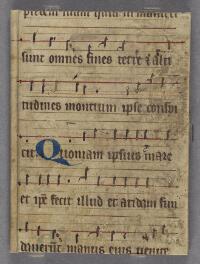 sunt omnes fines terre & alti
tudines montium ipse conspi
cit. Quoniam ipsius mare
et ip̄e fecit illud et aridam fun
dauerūt manus eius uenite